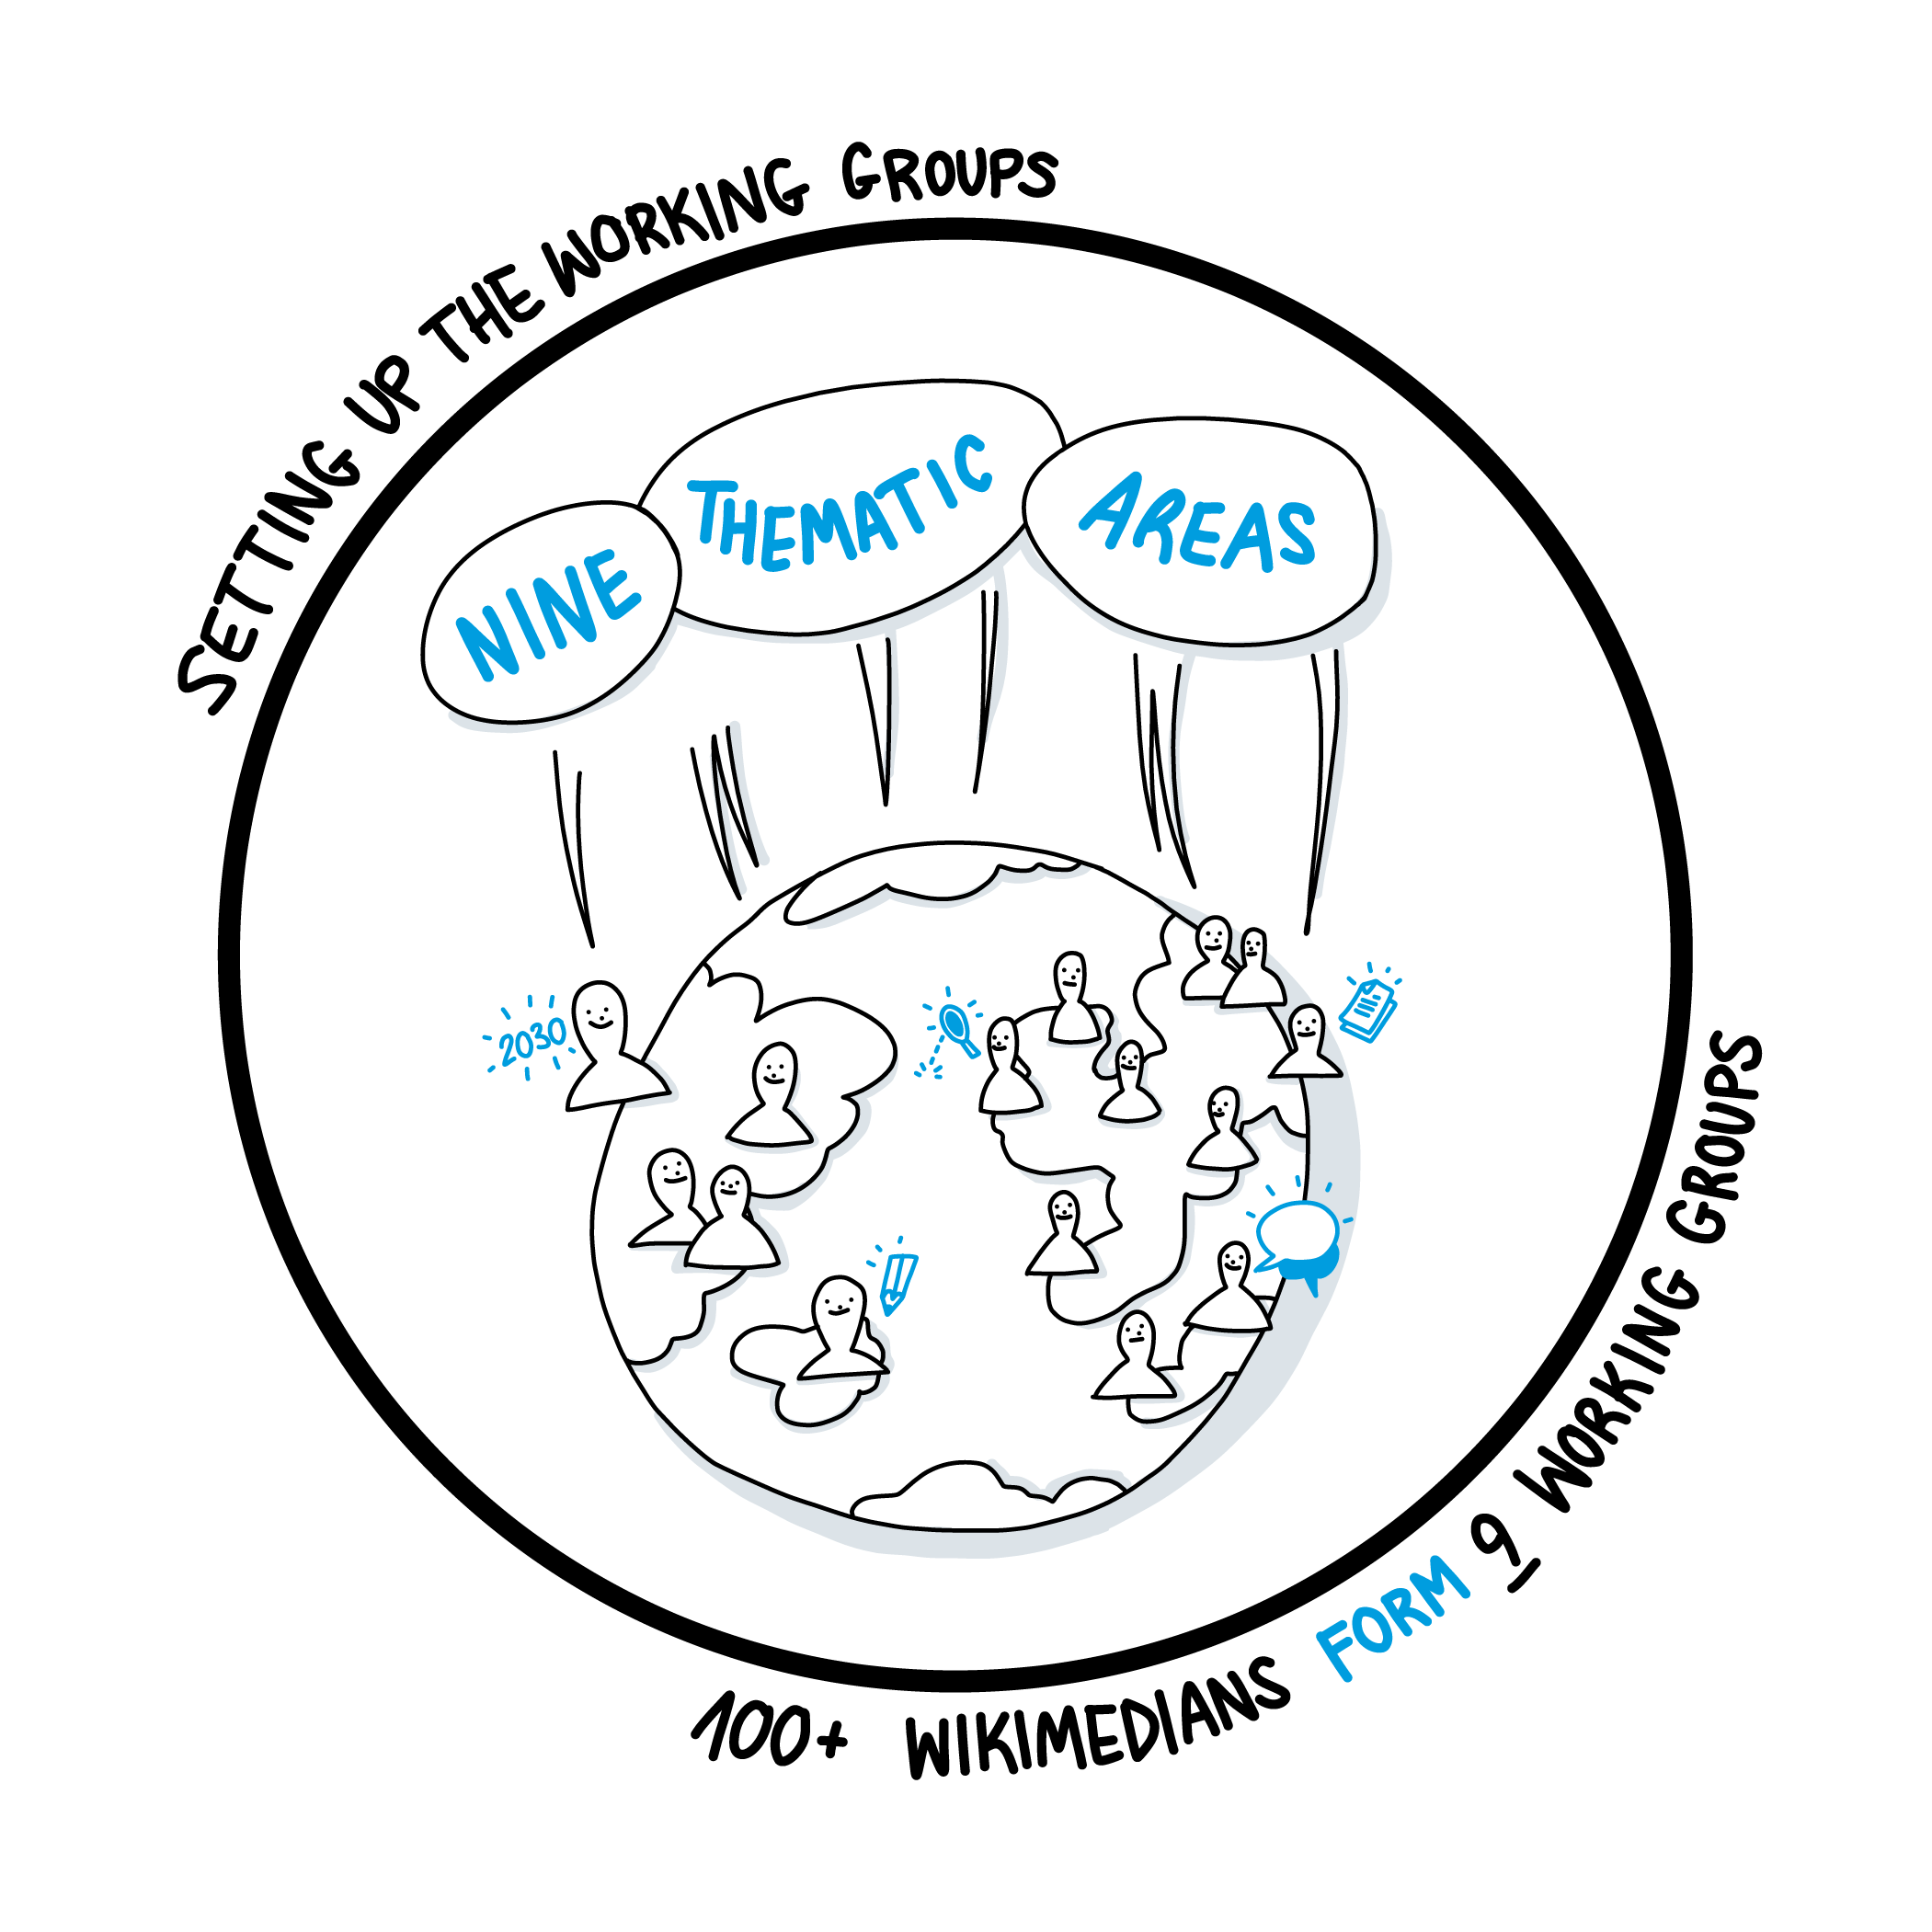 SETTING UP THE WORKING GROUPS
NINE THEMATIC AREAS
2030
100+ WIKIMEDIANS FORM 9 WORKING GROUPS